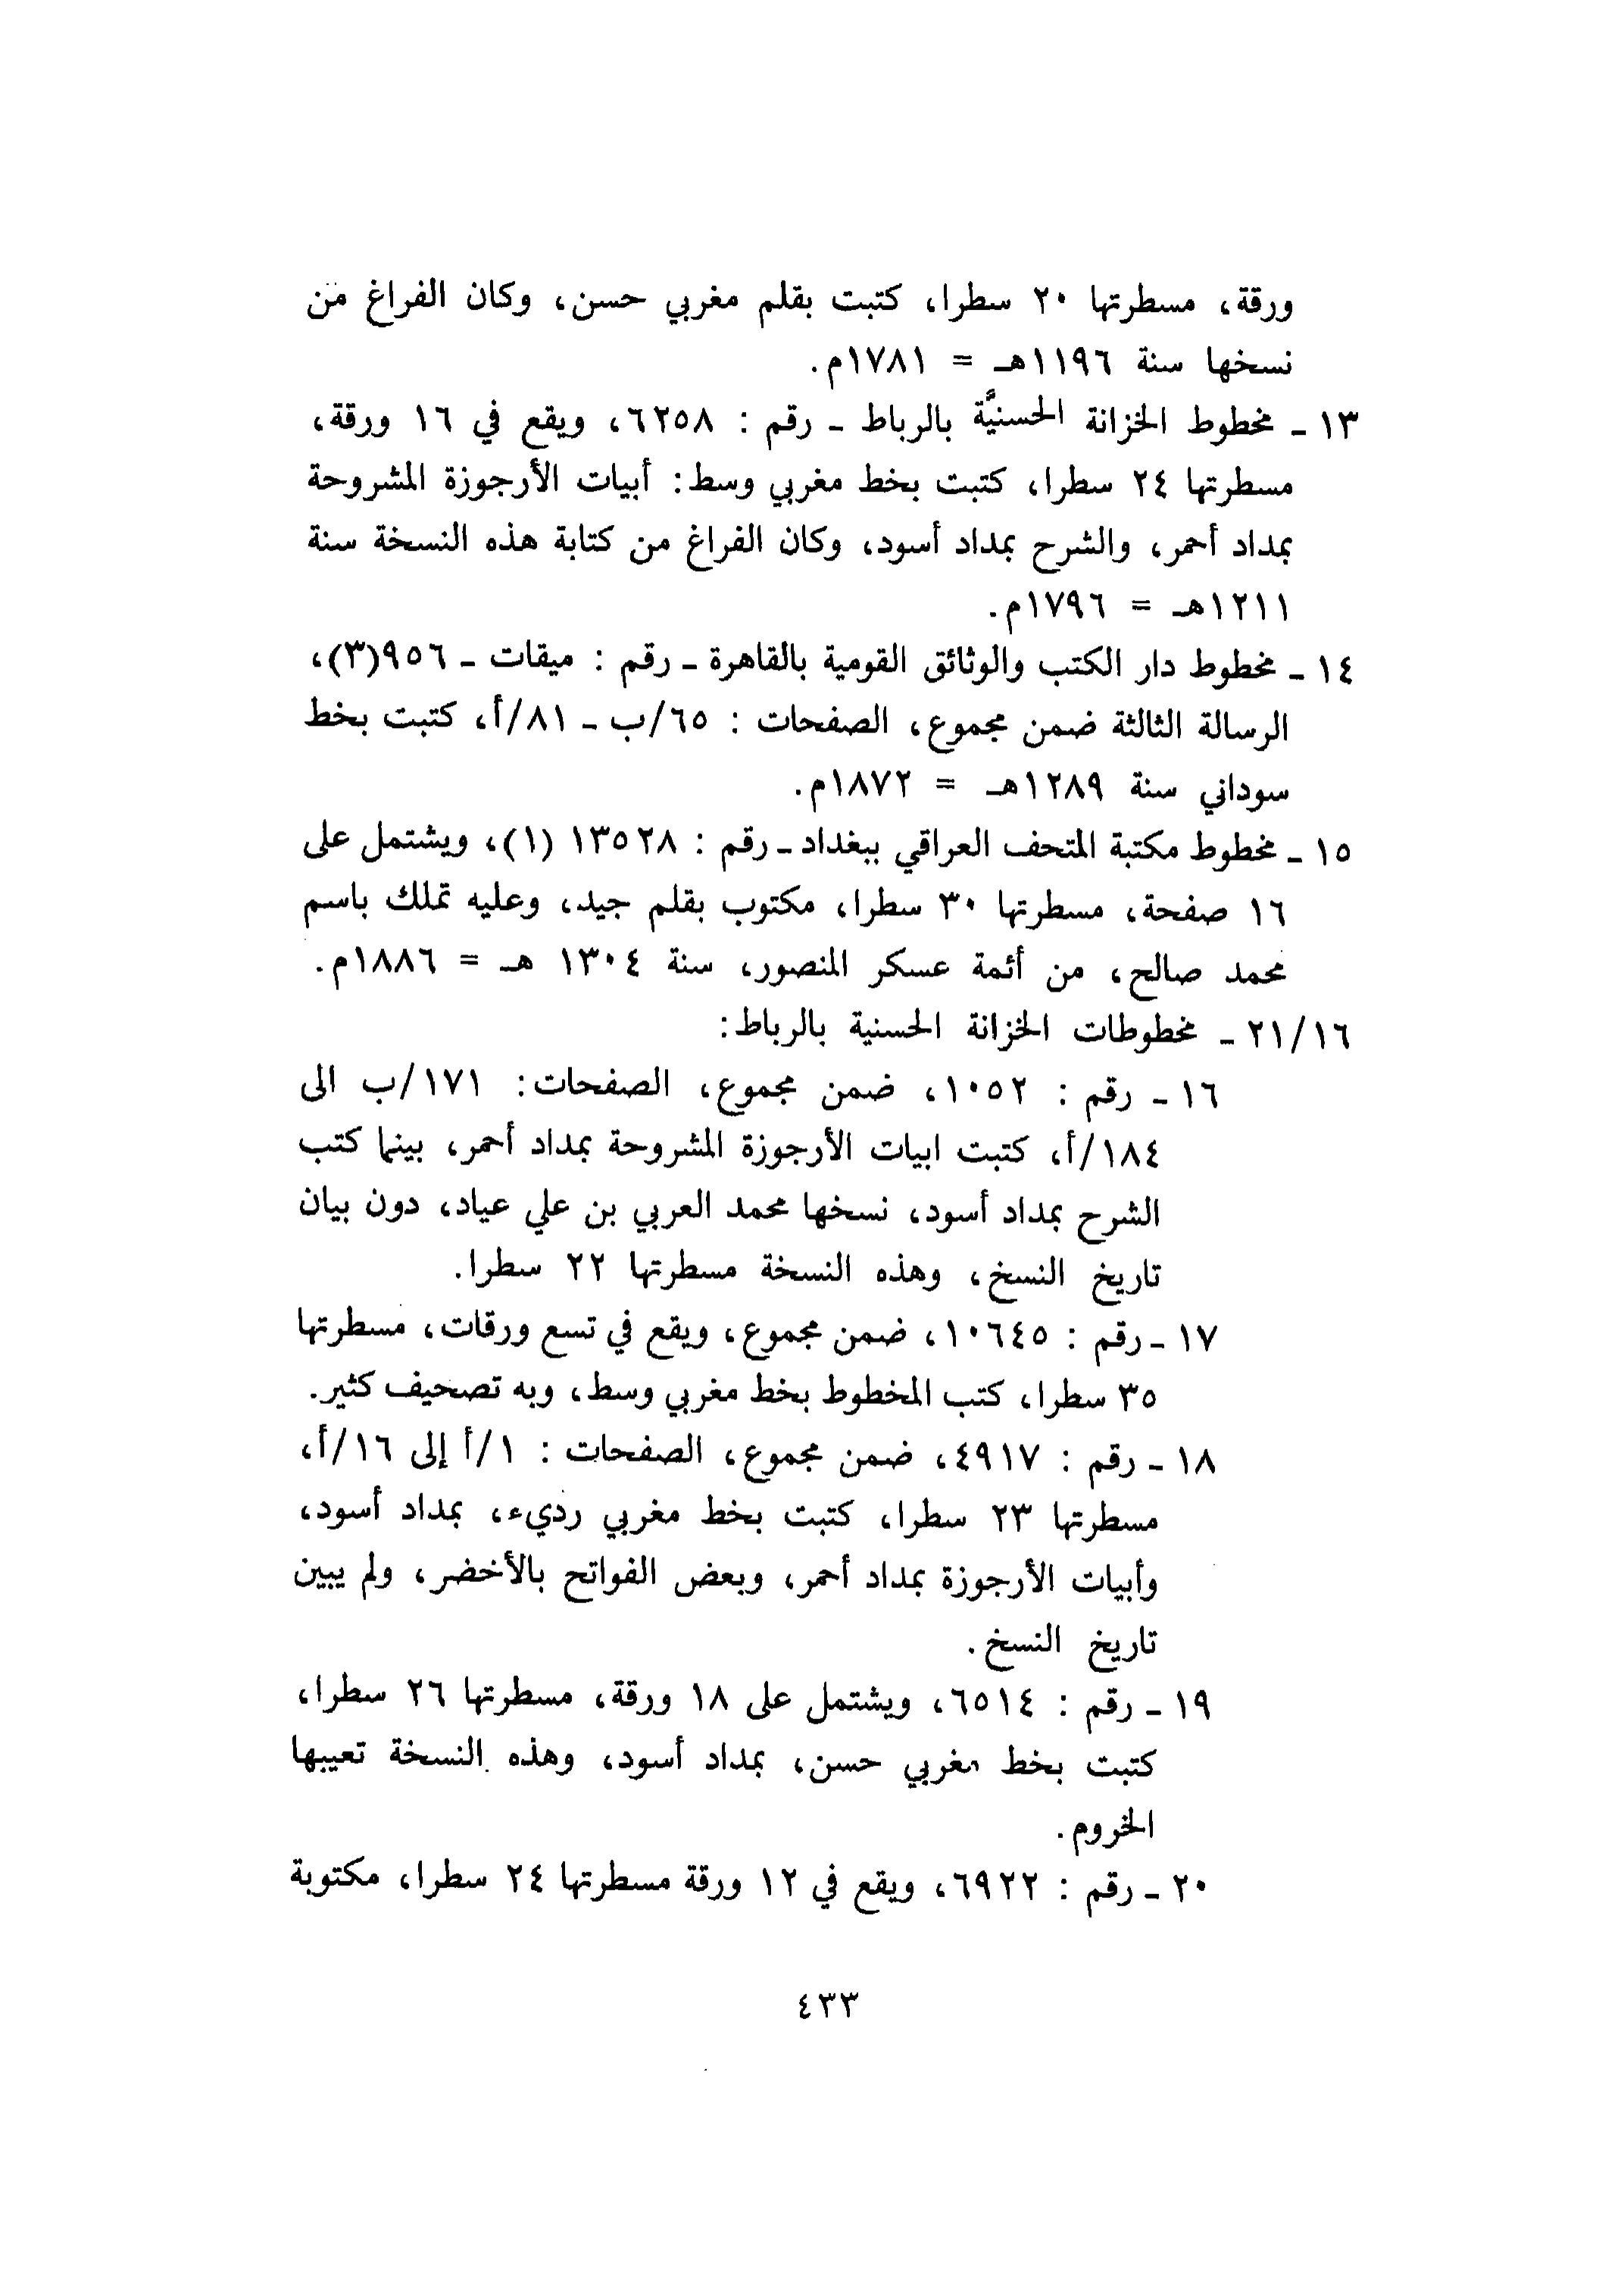 ورقة، مسطرتها ٢٠ سطرا، كتبت بقلم مغربي حسن، وكان الفراغ من
نسخها سنة ١١٩٦هـ = ١٧٨١م.
١٣ ـ مخطوط الخزانة الحسنيَّة بالرباط ـ رقم : ٦٢٥٨، ويقع في ١٦ ورقة،
مسطرتها ٢٤ سطرا، كتبت بخط مغربي وسط: أبيات الأرجوزة المشروحة
بمداد أحمر، والشرح بمداد أسود، وكان الفراغ من كتابة هذه النسخة سنة
١٢١١هـ = ١٧٩٦م.
١٤ ـ مخطوط دار الكتب والوثائق القومية بالقاهرة ـ رقم : ميقات ـ ٩٥٦(٣)،
الرسالة الثالثة ضمن مجموع، الصفحات : ٦٥/ب ـ ٨١/أ، كتبت بخط
سوداني سنة ١٢٨٩هـ = ١٨٧٢م.
١٥ ـ مخطوط مكتبة المتحف العراقي ببغداد ـ رقم : ١٣٥٢٨ (١)، ويشتمل على
١٦ صفحة، مسطرتها ٣٠ سطرا، مكتوب بقلم جيد، وعليه تملك باسم
محمد صالح، من أئمة عسكر المنصور، سنة ١٣٠٤ هـ = ١٨٨٦م.
٢١/١٦ ـ مخطوطات الخزانة الحسنية بالرباط:
١٦ ـ رقم : ١٠٥٢، ضمن مجموع، الصفحات: ١٧١/ب الى
١٨٤/أ، كتبت ابيات الأرجوزة المشروحة بمداد أحمر، بينما كتب
الشرح بمداد أسود، نسخها محمد العربي بن علي عياد، دون بيان
تاريخ النسخ، وهذه النسخة مسطرتها ٢٢ سطرا.
١٧ ـ رقم : ١٠٦٤٥، ضمن مجموع، ويقع في تسع ورقات، مسطرتها
٣٥ سطرا، كتب المخطوط بخط مغربي وسط، وبه تصحيف كثير.
١٨ ـ رقم : ٤٩١٧، ضمن مجموع، الصفحات : ١/أ إلى ١٦/أ،
مسطرتها ٢٣ سطرا، كتبت بخط مغربي رديء، بمداد أسود،
وأبيات الأرجوزة بمداد أحمر، وبعض الفواتح بالأخضر، ولم يبين
تاريخ النسخ.
١٩ ـ رقم : ٦٥١٤، ويشتمل على ١٨ ورقة، مسطرتها ٢٦ سطرا،
كتبت بخط مغربي حسن، بمداد أسود، وهذه النسخة تعيبها
الخروم.
٢٠ ـ رقم : ٦٩٢٢، ويقع في ١٢ ورقة مسطرتها ٢٤ سطرا، مكتوبة
٤٣٣